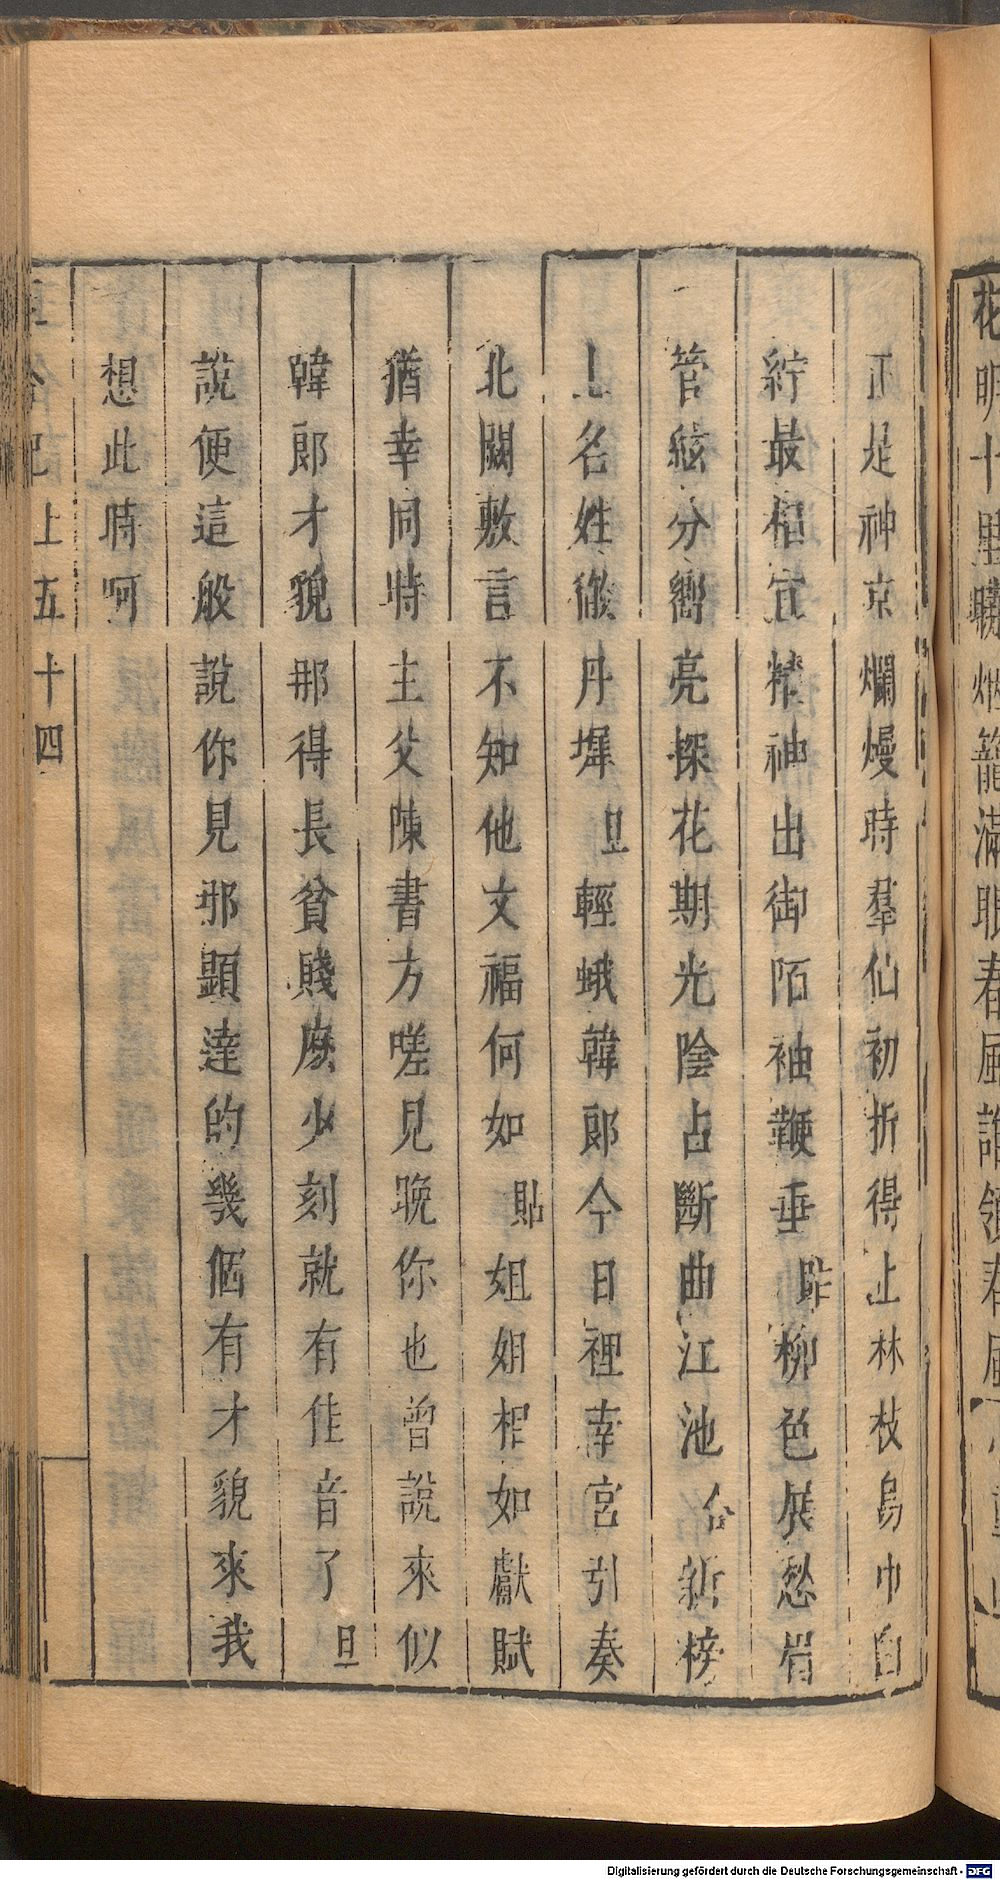 花明十里曉烟籠滿眼春風說領春風
正是神京爛熳時羣仙初折得上林枝烏巾白
紵最相宜精神出御陌袖鞭垂貼柳色展愁眉
管絃分嚮亮探花期光陰占斷曲江池合新榜
上名姓徹丹墀旦輕蛾韓郎今日裡幸宮引奏
北闕敷言不知他文福何如貼姐姐相如獻賦
猶幸同時主父陳書方嗟見晚你也曾說來似
韓郎才貌那得長貧賤麽少刻就有佳音了旦
說便這般說你見那顯達的幾個有才貌來我
想此時呵
玉合記上五十四
Digitalisierung gefördert durch die Deutsche Forschungsgemeinschaft - DFG